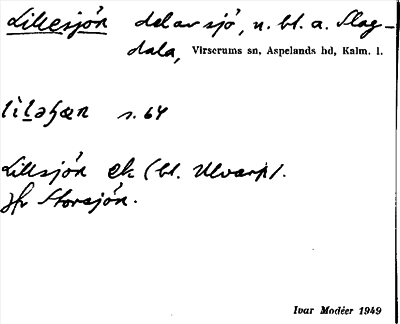 Lillesjön del av sjö, n. bl. a. Slag-
dala, Virserums sn, Aspelands hd, Kalm. l.
s. 64
Lillsjön ek (bl. Ulvarp).
Jfr Storsjön.
Ivar Modéer 1949